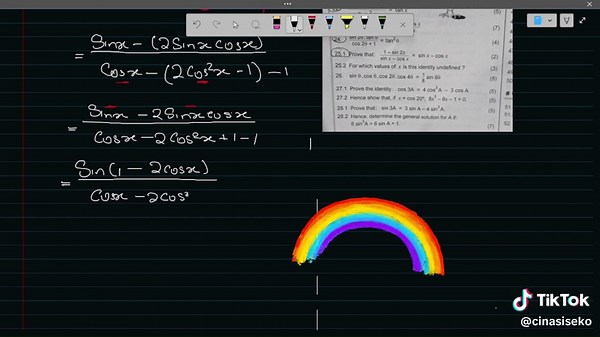 = Sinx - (2Sinx cosx)
Cosx - (2Cos²x - 1) - 1
= Sinx - 2Sinx cosx
Cosx - 2Cos²x + 1 - 1
= Sin(1 - 2cosx)
Cosx - 2cos²
cos 2θ + 1
25.1 Prove that: 1 − sin 2x / sin x − cos x = sin x − cos x
25.2 For which values of x is this identity undefined?
26. sin θ. cos θ. cos 2θ. cos 4θ = 1/8 sin 8θ
27.1 Prove the identity: cos 3A = 4 cos³A − 3 cos A
27.2 Hence show that, if x = cos 20°, 8x³ − 6x − 1 = 0.
28.1 Prove that: sin 3A = 3 sin A − 4 sin³A
28.2 Hence, determine the general solution for A if:
8 sin³A = 6 sin A + 1.
TikTok
@cinasiseko